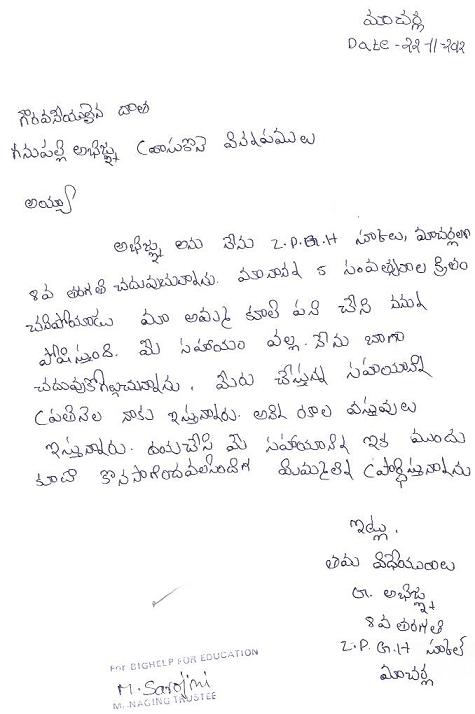 మాచర్ల
Date - 22-11-2012
గౌరవనీయులైన దాత
గనుపల్లి అభిజ్ఞ వ్రాసుకొనే విన్నపములు
అయ్యా
అభిజ్ఞ అను నేను Z.P.G.H స్కూలు, మాచర్లలో
8వ తరగతి చదువుచున్నాను. మా నాన్న 5 సంవత్సరాల క్రితం
చనిపోయాడు మా అమ్మ కూలి పని చేసి నన్ను
పోషిస్తుంది. మీ సహాయం వల్ల. నేను బాగా
చదువుకోగల్గుచున్నాను. మీరు చేస్తున్న సహాయాన్ని
ప్రతినెల నాకు ఇస్తున్నారు. అన్ని రకాల వస్తువులు
ఇస్తున్నారు. దయచేసి మీ సహాయాన్ని ఇక ముందు
కూడా కొనసాగించవలసిందిగా మిమ్మల్ని ప్రార్థిస్తున్నాను
ఇట్లు.
తమ విధేయురాలు
G. అభిజ్ఞ
8వ తరగతి
Z.P.G.H స్కూల్
మాచర్ల
For BIGHELP FOR EDUCATION
M. Sarojini
MANAGING TRUSTEE